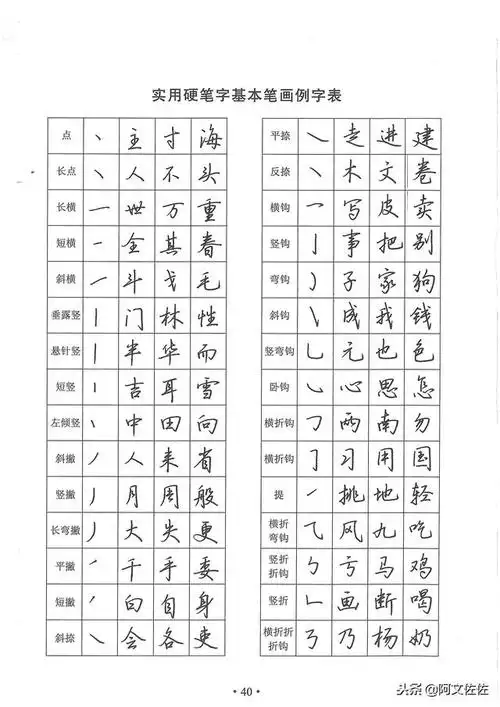 实用硬笔字基本笔画例字表
点 丶 主 寸 海
长点 丶 人 不 头
长横 一 世 万 重
短横 一 全 其 春
斜横 一 斗 戈 毛
垂露竖 丨 门 林 性
悬针竖 丨 半 华 而
短竖 丨 吉 耳 雪
左倾竖 丨 中 田 向
斜撇 丿 人 来 省
竖撇 丿 月 周 般
长弯撇 丿 大 失 更
平撇 丿 千 手 委
短撇 丿 白 自 身
斜捺 ㇏ 会 各 吏
平捺 ㇏ 走 进 建
反捺 ㇏ 木 文 卷
横钩 乛 写 皮 卖
竖钩 亅 事 把 别
弯钩 ㇁ 子 家 狗
斜钩 ㇂ 成 我 钱
竖弯钩 乚 元 也 色
卧钩 ㇃ 心 思 怎
横折钩 ㇆ 两 南 勿
横折钩 ㇆ 习 用 国
提 ㇀ 挑 地 轻
横折弯钩 ⺄ 风 九 吃
竖折折钩 ㇉ 亏 马 鸡
竖折 ㇗ 画 断 喝
横折折折钩 ㇡ 乃 杨 奶
· 40 ·
头条@阿文佐佐